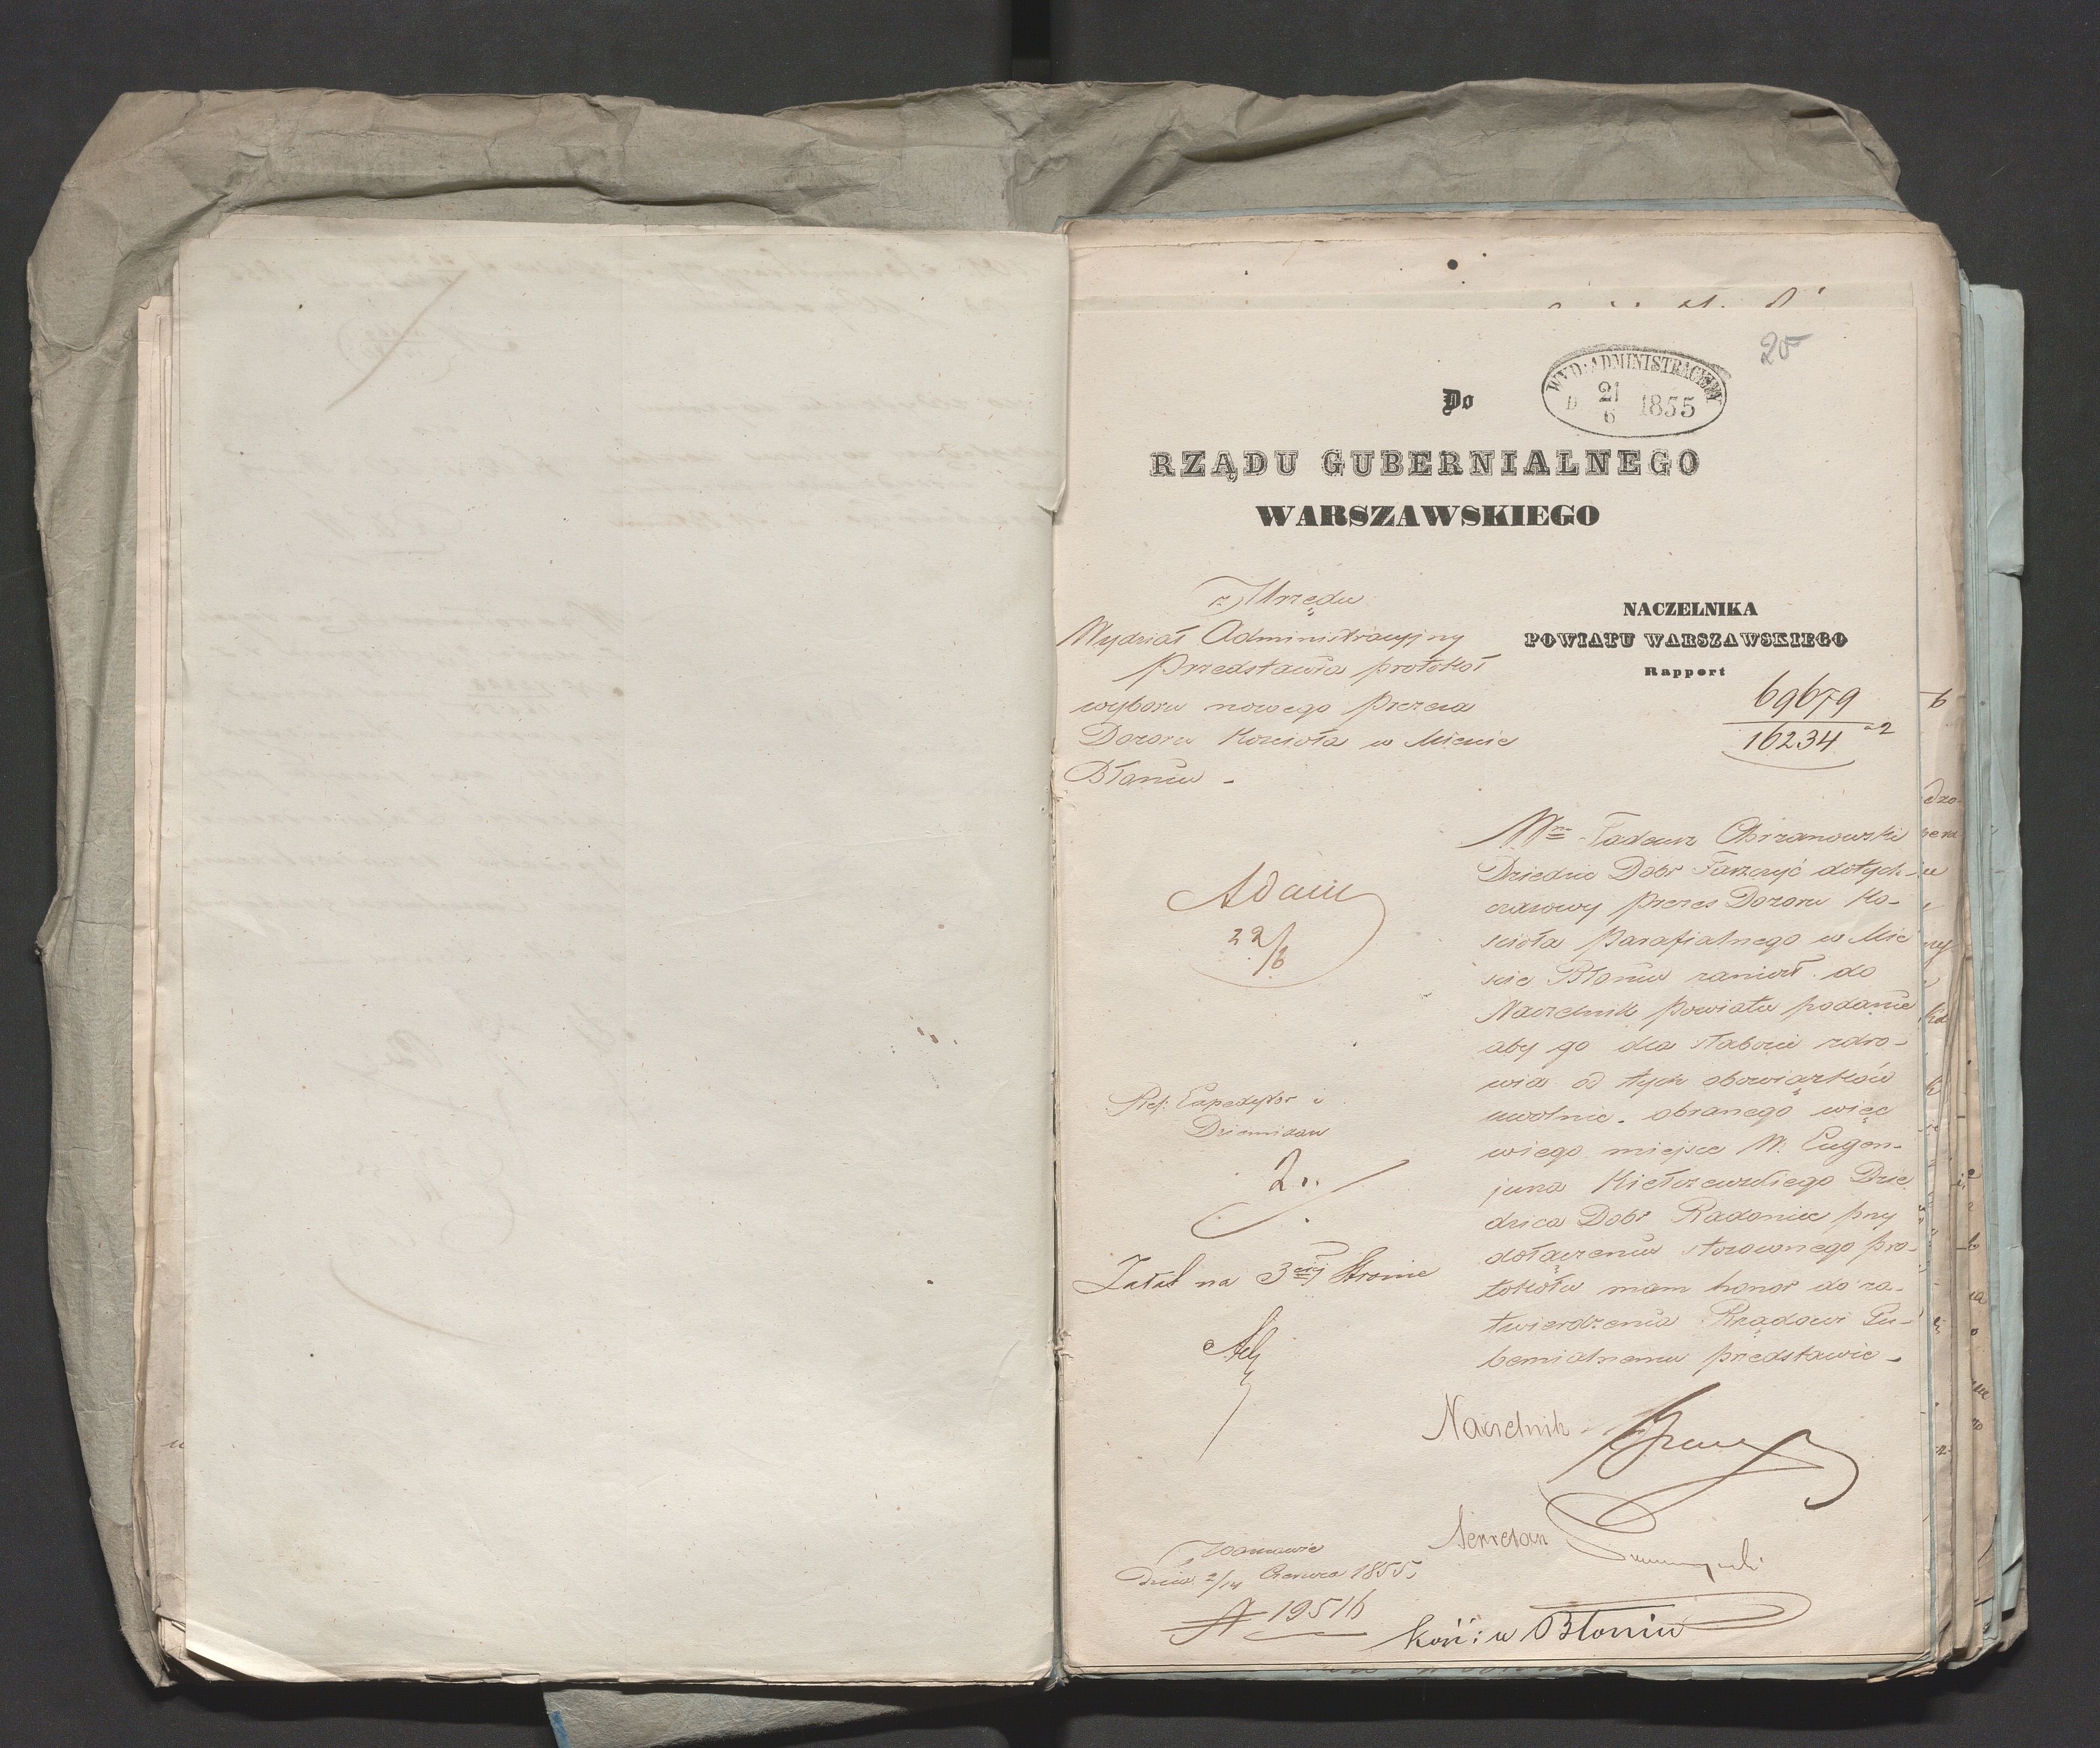 20
WYD: ADMINISTRACYJNY
D 21/6 1855
Do
RZĄDU GUBERNIALNEGO
WARSZAWSKIEGO
z Urzędu
Wydział Administracyjny
Przedstawia protokół
wyboru nowego Prezesa
Dozoru Kościoła w Mieście
Błoniu -
NACZELNIKA
POWIATU WARSZAWSKIEGO
Rapport
69679
16234
Adam
22/6
Ref: Expedytor i
2.
na 3ciej Stronie
Wny Tadeusz Chrzanowski
Dziedzic Dóbr Faszczyc dotych-
czasowy Prezes Dozoru Ko-
ścioła Parafialnego w Mie
ście Błoniu zaniósł do
Naczelnik Powiatu podanie
aby go dla słabości zdro-
wia od tych obowiązków
uwolnić. obranego więc
w iego miejsce W. Eugen-
jusza Kiełczewskiego Dzie
dzica Dóbr Radonice przy
dołączeniu stosownego pro-
tokółu mam honor do za-
twierdzenia Rządowi Gu-
bernialnemu przedstawić -
Naczelnik
Sekretarz
w Warszawie
Dnia 2/14 Czerwca 1855.
N 19516
Kość: w Błoniu